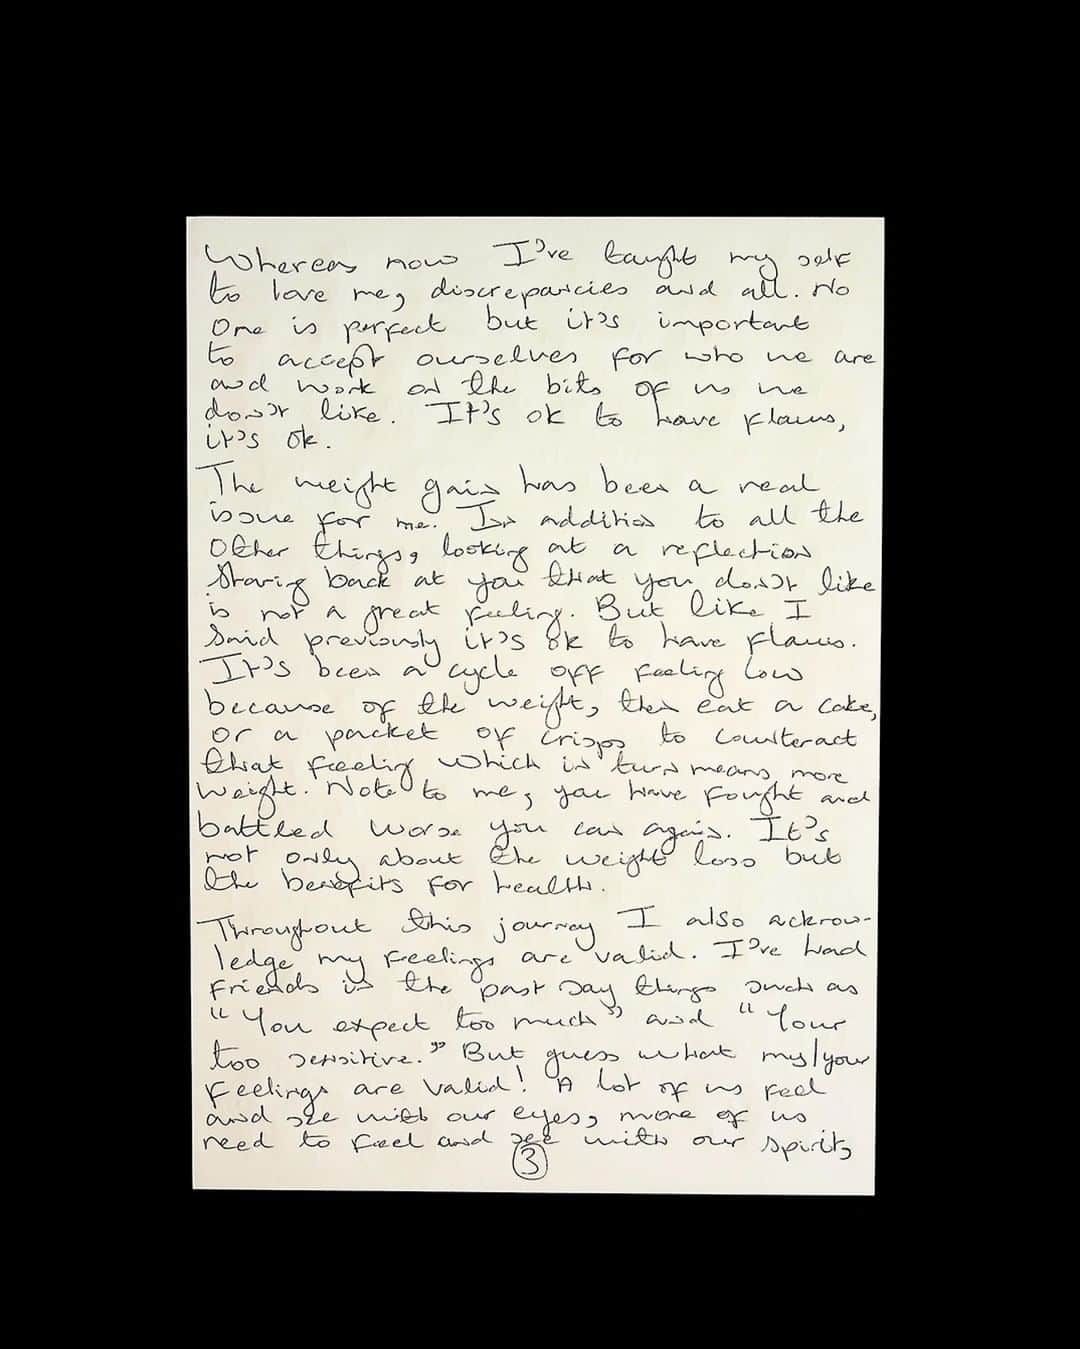 Whereas now I've taught my self
to love me, discrepancies and all. No
One is perfect but it's important
to accept ourselves for who we are
and work on the bits of us we
don't like. It's ok to have flaws,
it's ok.
The weight gain has been a real
issue for me. In addition to all the
Other things, looking at a reflection
Staring back at you that you don't like
is not a great feeling. But like I
Said previously it's ok to have flaws.
It's been a cycle off feeling low
because of the weight, then eat a cake,
or a packet of crisps to counteract
that feeling which in turn means more
weight. Note to me, you have fought and
battled worse you can again. It's
not only about the weight loss but
the benefits for health.
Throughout this journey I also acknow-
ledge my feelings are valid. I've had
Friends in the past say things such as
"You expect too much" and "Your
too sensitive." But guess what my/your
Feelings are valid! A lot of us feel
and see with our eyes, more of us
need to feel and see with our spirit,
3